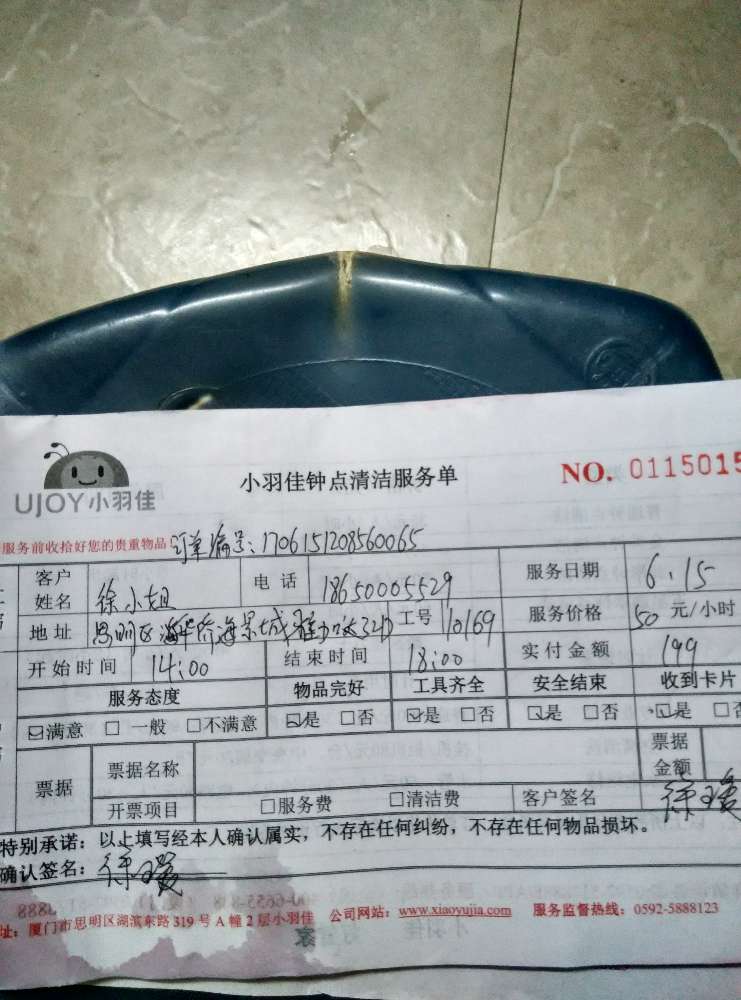 UJOY小羽佳
小羽佳钟点清洁服务单
NO. 0115015
服务前收拾好您的贵重物品!
订单编号:1706151208560065
客户姓名 徐小姐 电话 18650005529 服务日期 6.15
地址 思明区 华侨海景城 工号 10169 服务价格 50 元/小时
开始时间 14:00 结束时间 18:00 实付金额 199
服务态度 物品完好 工具齐全 安全结束 收到卡片
☑满意 □一般 □不满意 ☑是 □否 ☑是 □否 ☑是 □否 ☑是 □否
票据 票据名称 票据金额
开票项目 □服务费 □清洁费 客户签名 徐
特别承诺:以上填写经本人确认属实,不存在任何纠纷,不存在任何物品损坏。
确认签名:徐
址:厦门市思明区湖滨东路 319 号 A 幢 2 层小羽佳 公司网站:www.xiaoyujia.com 服务监督热线:0592-5888123